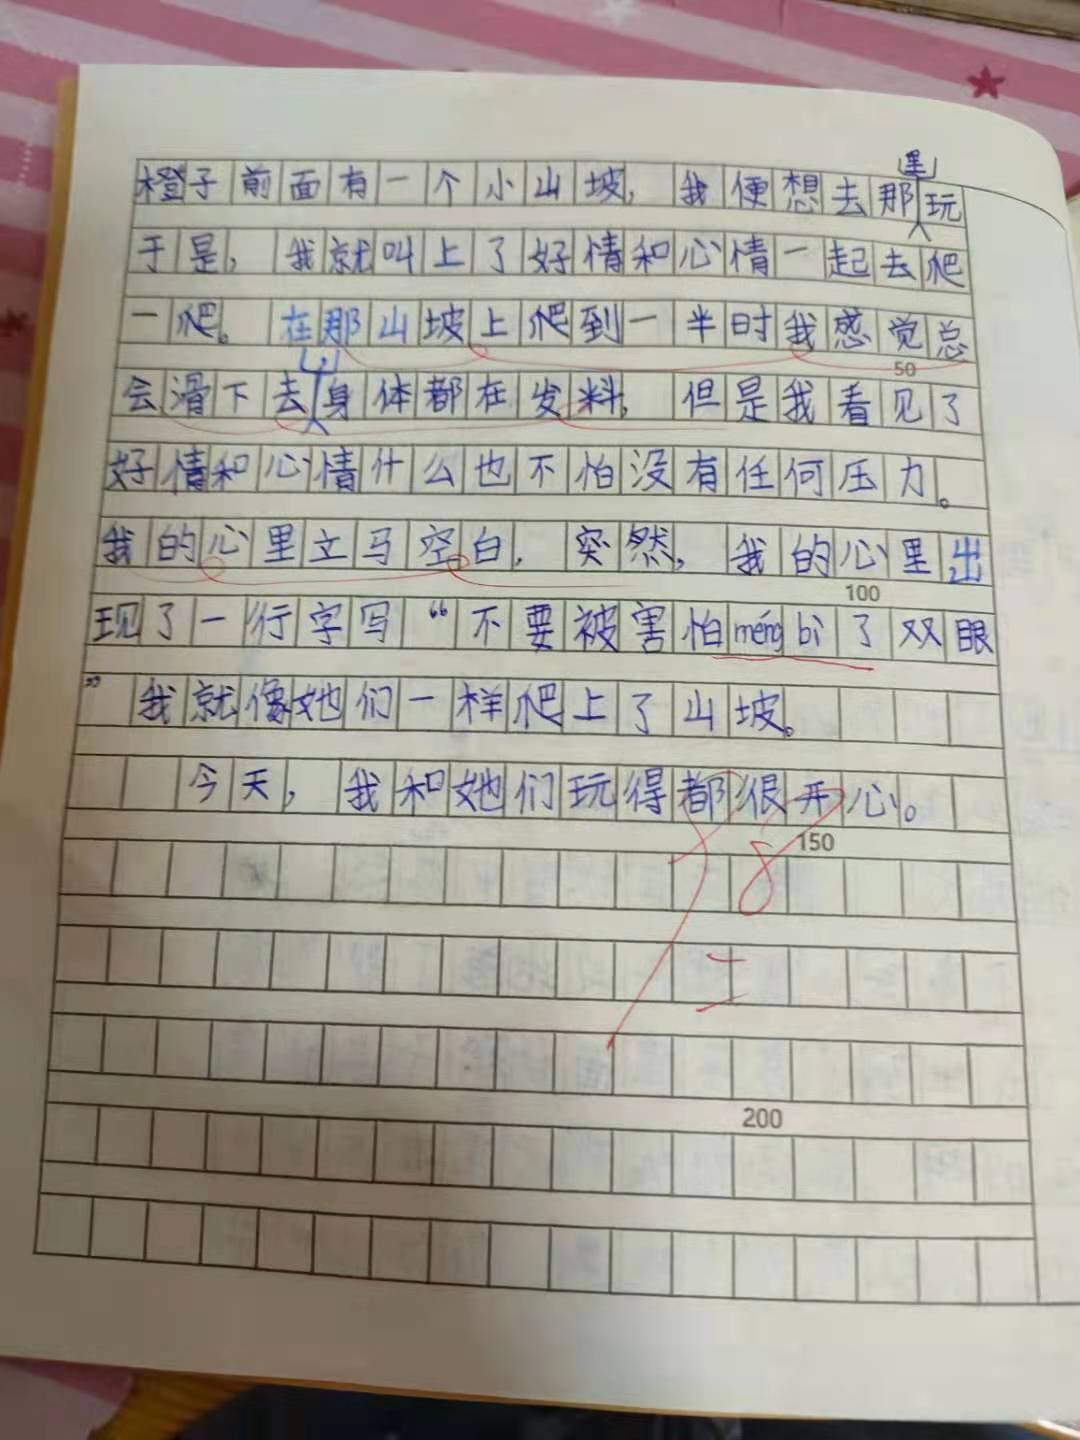 里
橙子前面有一个小山坡，我便想去那玩
于是，我就叫上了好情和心情一起去爬
一爬。在那山坡上爬到一半时我感觉总
50
会滑下去身体都在发料，但是我看见了
好情和心情什么也不怕没有任何压力。
我的心里立马空白，突然，我的心里出
100
现了一行字写“不要被害怕méng bì了双眼
”我就像她们一样爬上了山坡。
今天，我和她们玩得都很开心。
150
200